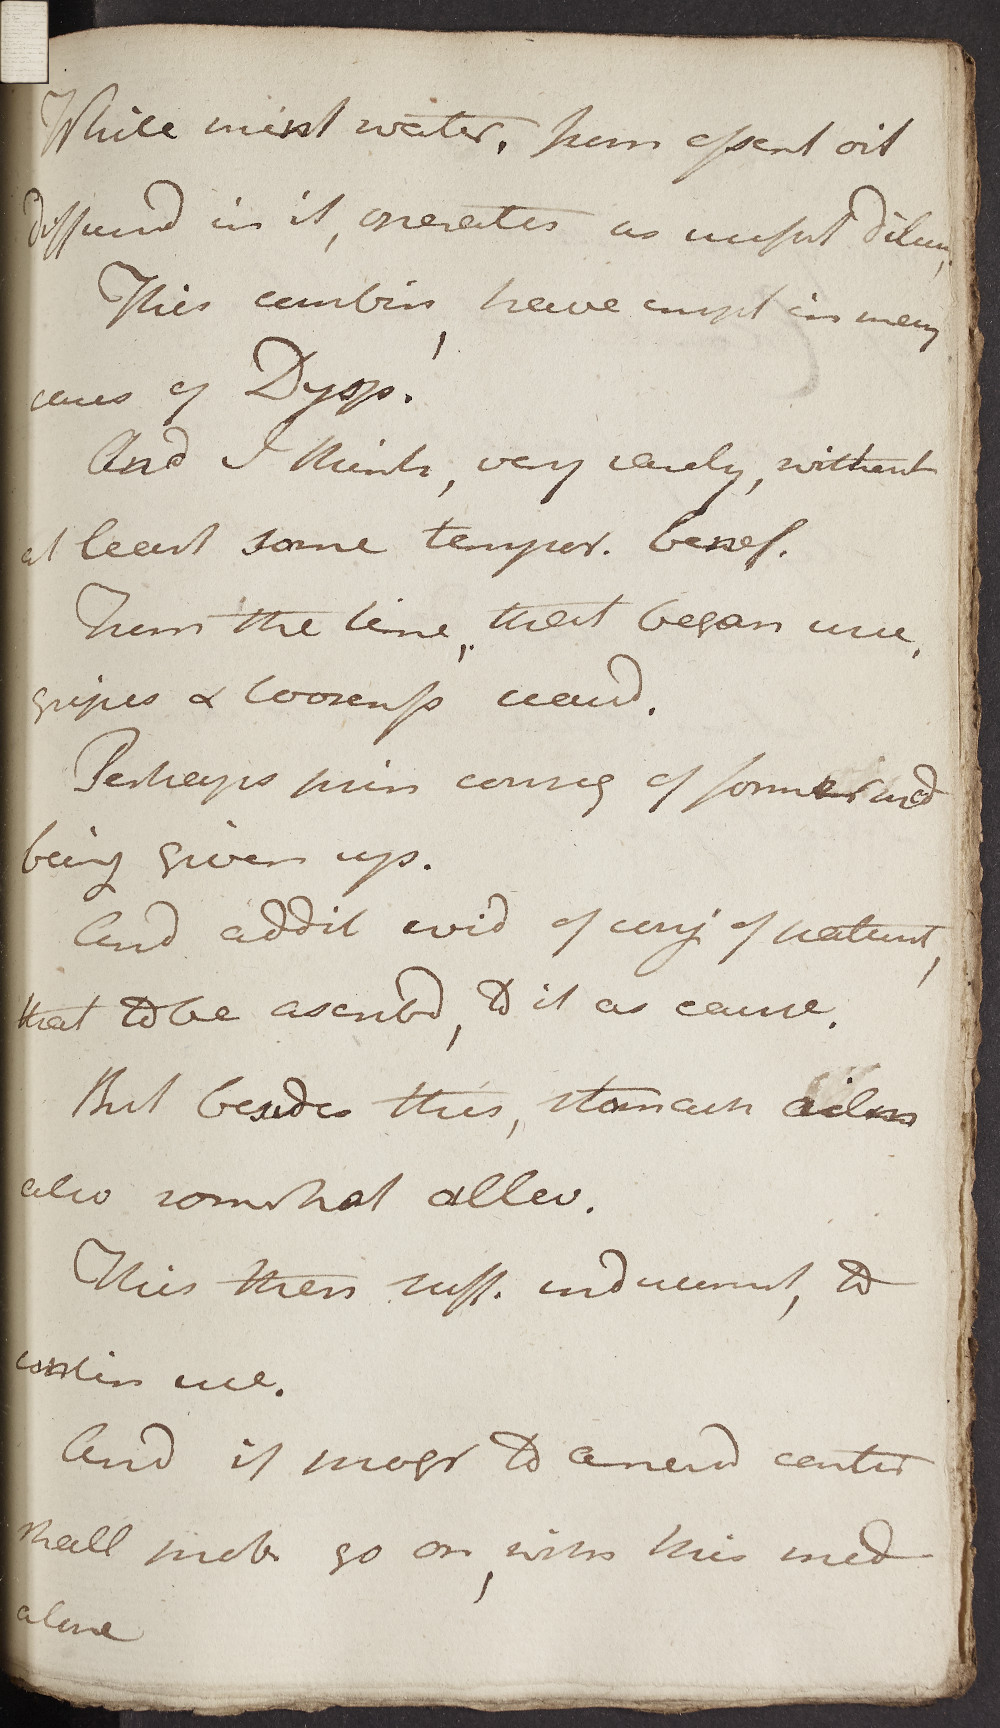 While mint water, from essent oil
diffused in it, operates as usefull diluent,
This combin, have empl in many
cases of Dysp.
And I think, very rarely, without
at least some tempor. benef.
From the time, that began use,
gripes & loosenss ceasd.
Perhaps from conseq of former med
being given up.
And addit evid of conj of naturt,
that to be ascribd, to it as cause.
But besides this, stomach
also somwhat allev.
This then suff. inducemnt, to
contin use.
And if progr to amend contin
shall prob go on, with this med
alone